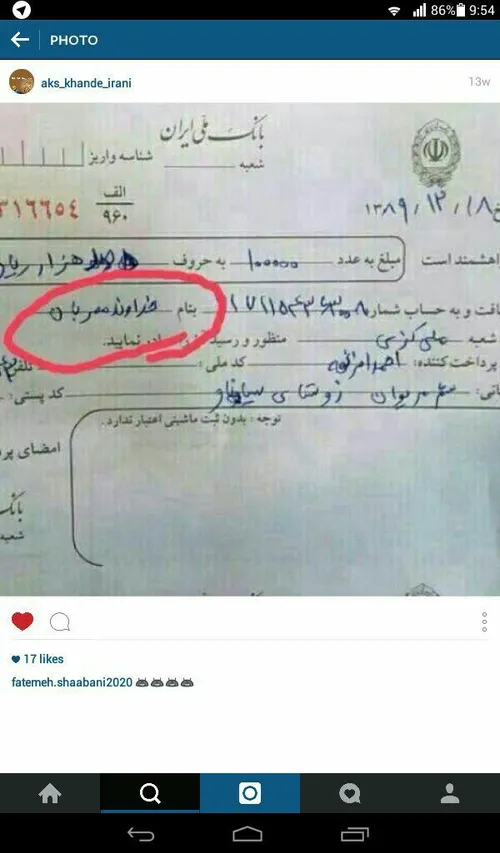 86% 9:54
PHOTO
aks_khande_irani 13w
بانک ملی ایران
شناسه واریز
شعبه
الف
۹۶۰
۳۱۶۶۵۴
۱۳۸۹/۱۲/۱۸
مبلغ به عدد ۱۰۰۰۰۰ به حروف هزار ریال
افت و به حساب شماره بنام خداوند مهربان
شعبه منظور و رسید نمایید.
پرداخت کننده: احمد کد ملی: تلفن
مریوان روستای کد پستی:
توجه: بدون ثبت ماشینی اعتبار ندارد.
امضای پر
بانک
شعبه
17 likes
fatemeh.shaabani2020